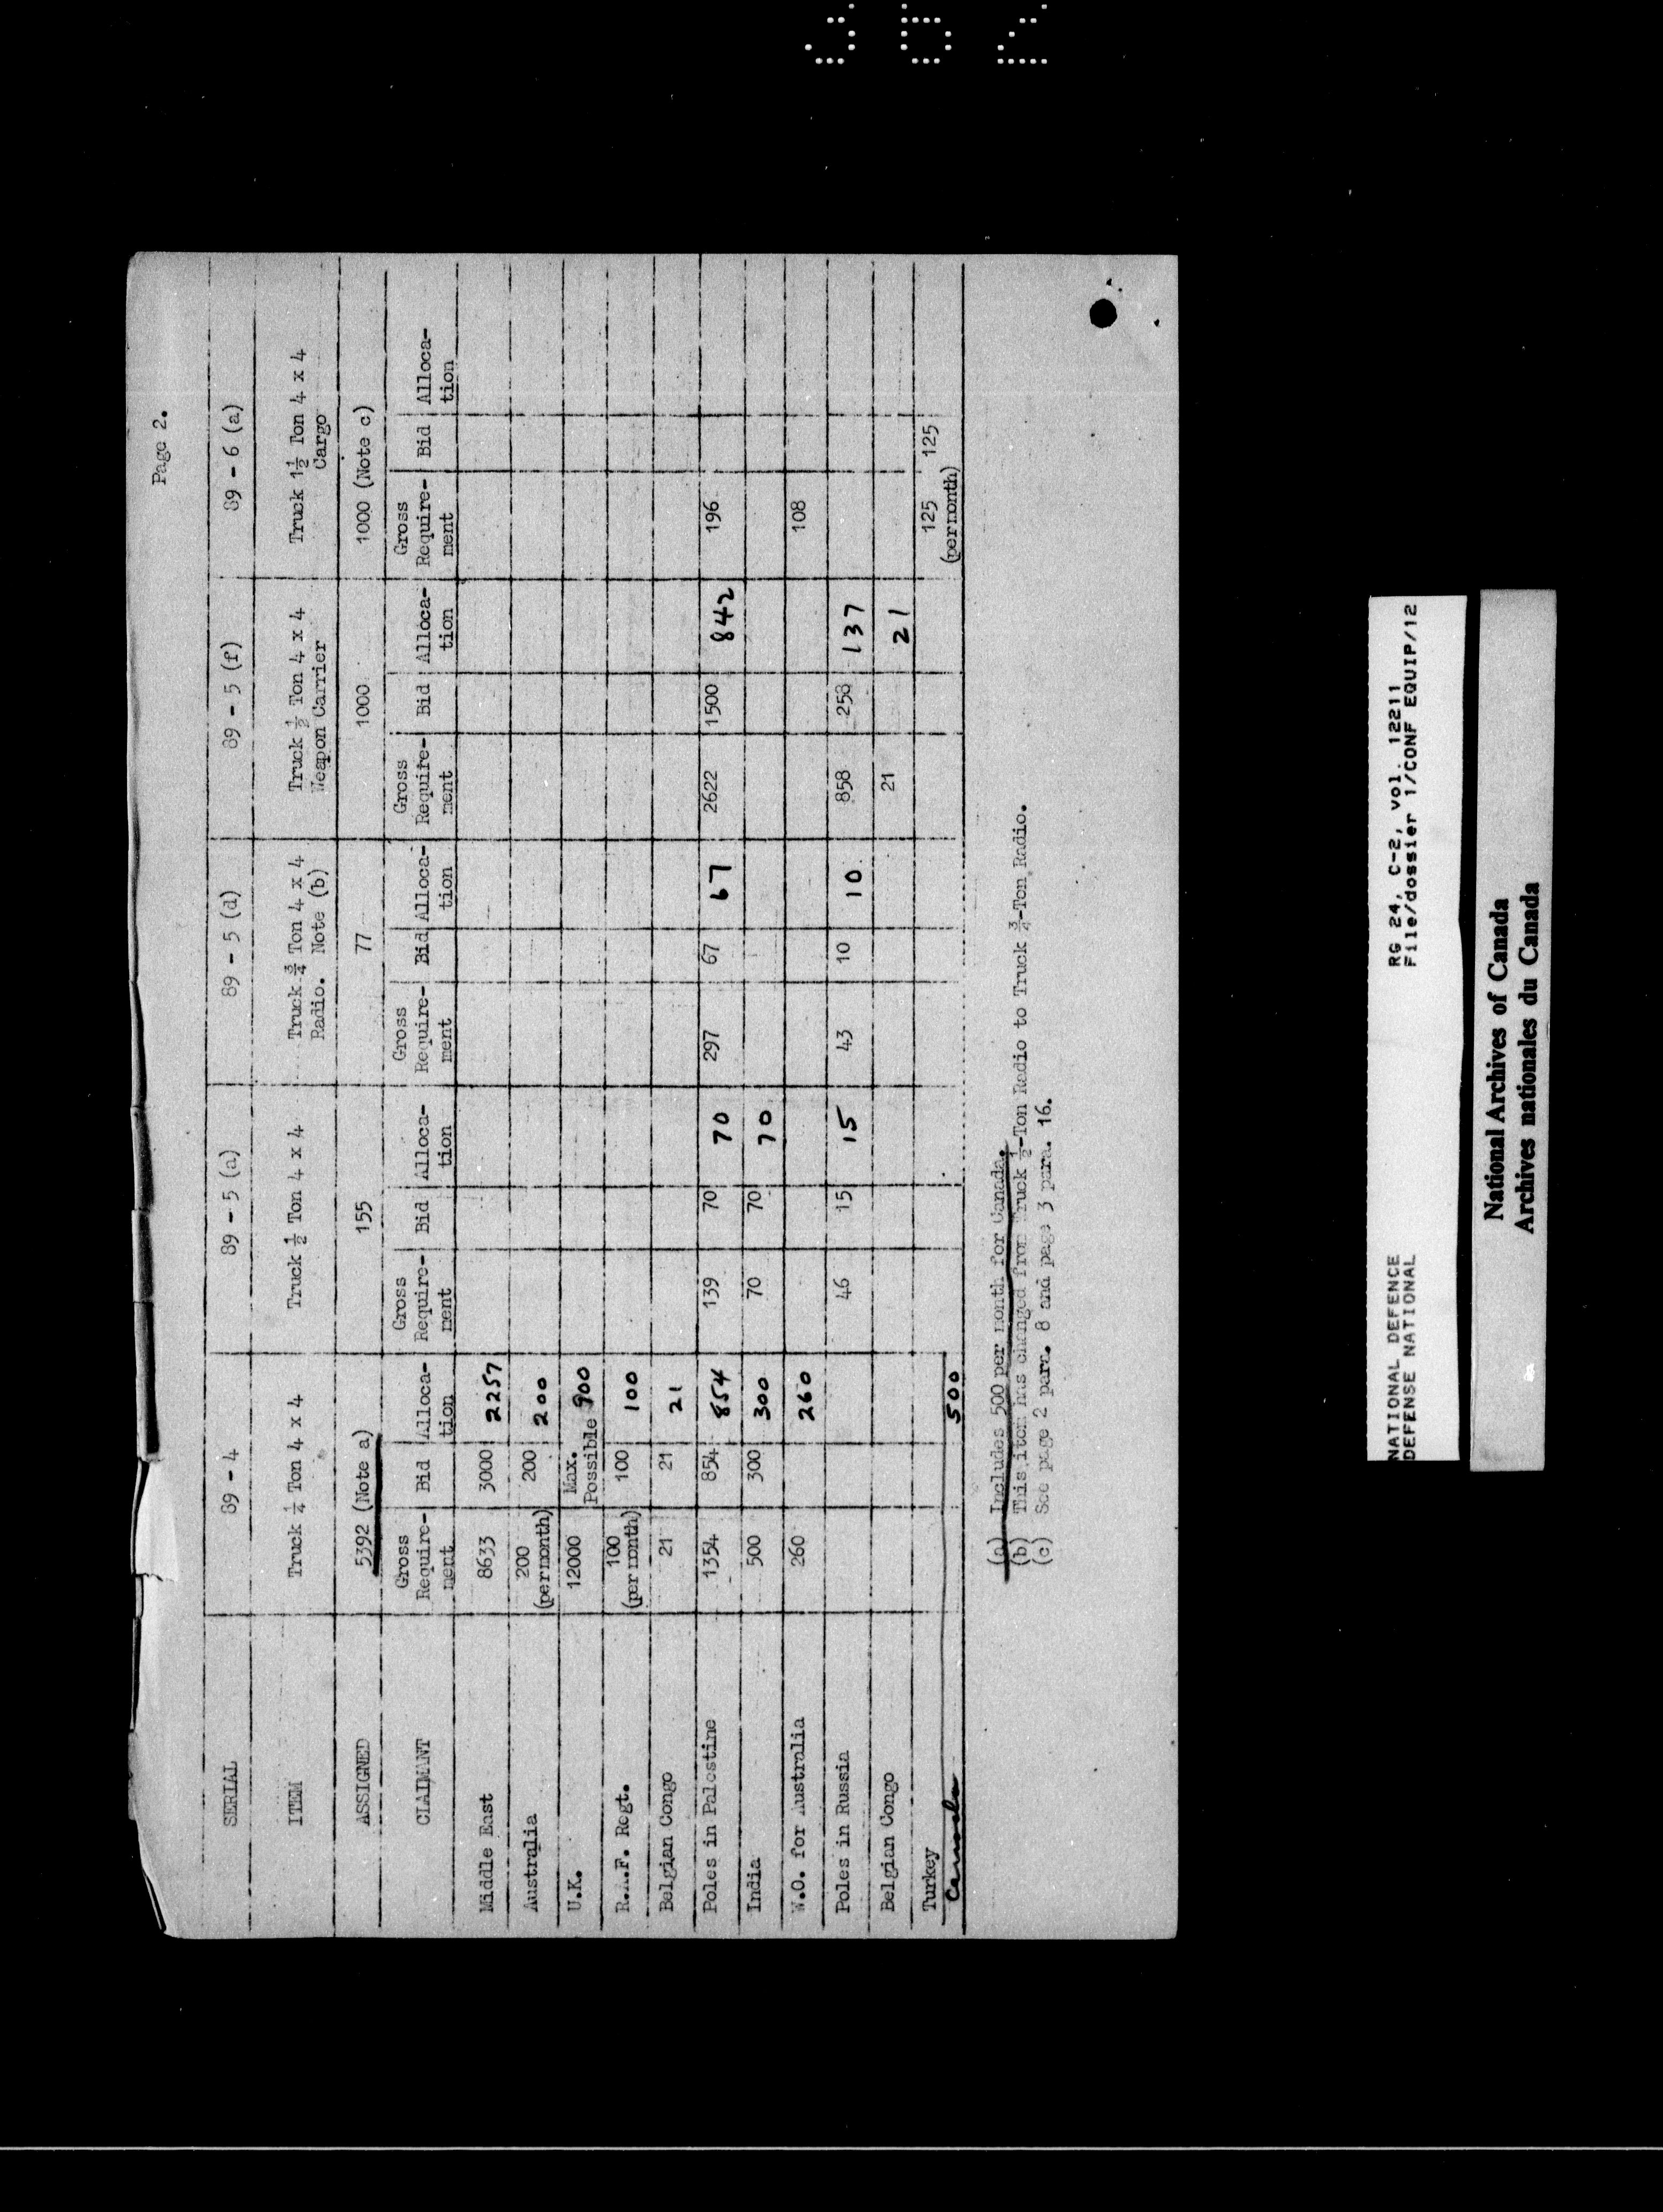 362
Page 2.
SERIAL 89 - 4 89 - 5 (a) 89 - 5 (d) 89 - 5 (f) 89 - 6 (a)
ITEM Truck ¼ Ton 4 x 4 Truck ½ Ton 4 x 4 Truck ¾ Ton 4 x 4 Truck ½ Ton 4 x 4 Truck 1½ Ton 4 x 4
Radio. Note (b) Weapon Carrier Cargo
ASSIGNED 5392 (Note a) 155 77 1000 1000 (Note c)
CLAIMANT Gross Require-ment Bid Alloca-tion Gross Require-ment Bid Alloca-tion Gross Require-ment Bid Alloca-tion Gross Require-ment Bid Alloca-tion Gross Require-ment Bid Alloca-tion
Middle East 8633 3000 2257
Australia 200 (per month) 200 200
U.K. 12000 Max. Possible 900
R.A.F. Regt. 100 (per month) 100 100
Belgian Congo 21 21 21
Poles in Palestine 1354 854 854 139 70 70 297 67 67 2622 1500 842 196
India 500 300 300 70 70 70
W.O. for Australia 260 260 108
Poles in Russia 46 15 15 43 10 10 858 258 137
Belgian Congo 21 21
Turkey 125 (per month) 125
Canada 500
(a) Includes 500 per month for Canada.
(b) This item has changed from Truck ½-Ton Radio to Truck ¾-Ton Radio.
(c) See page 2 para. 8 and page 3 para. 16.
NATIONAL DEFENCE RG 24, C-2, vol. 12211
DEFENSE NATIONAL File/dossier 1/CONF EQUIP/12
National Archives of Canada
Archives nationales du Canada